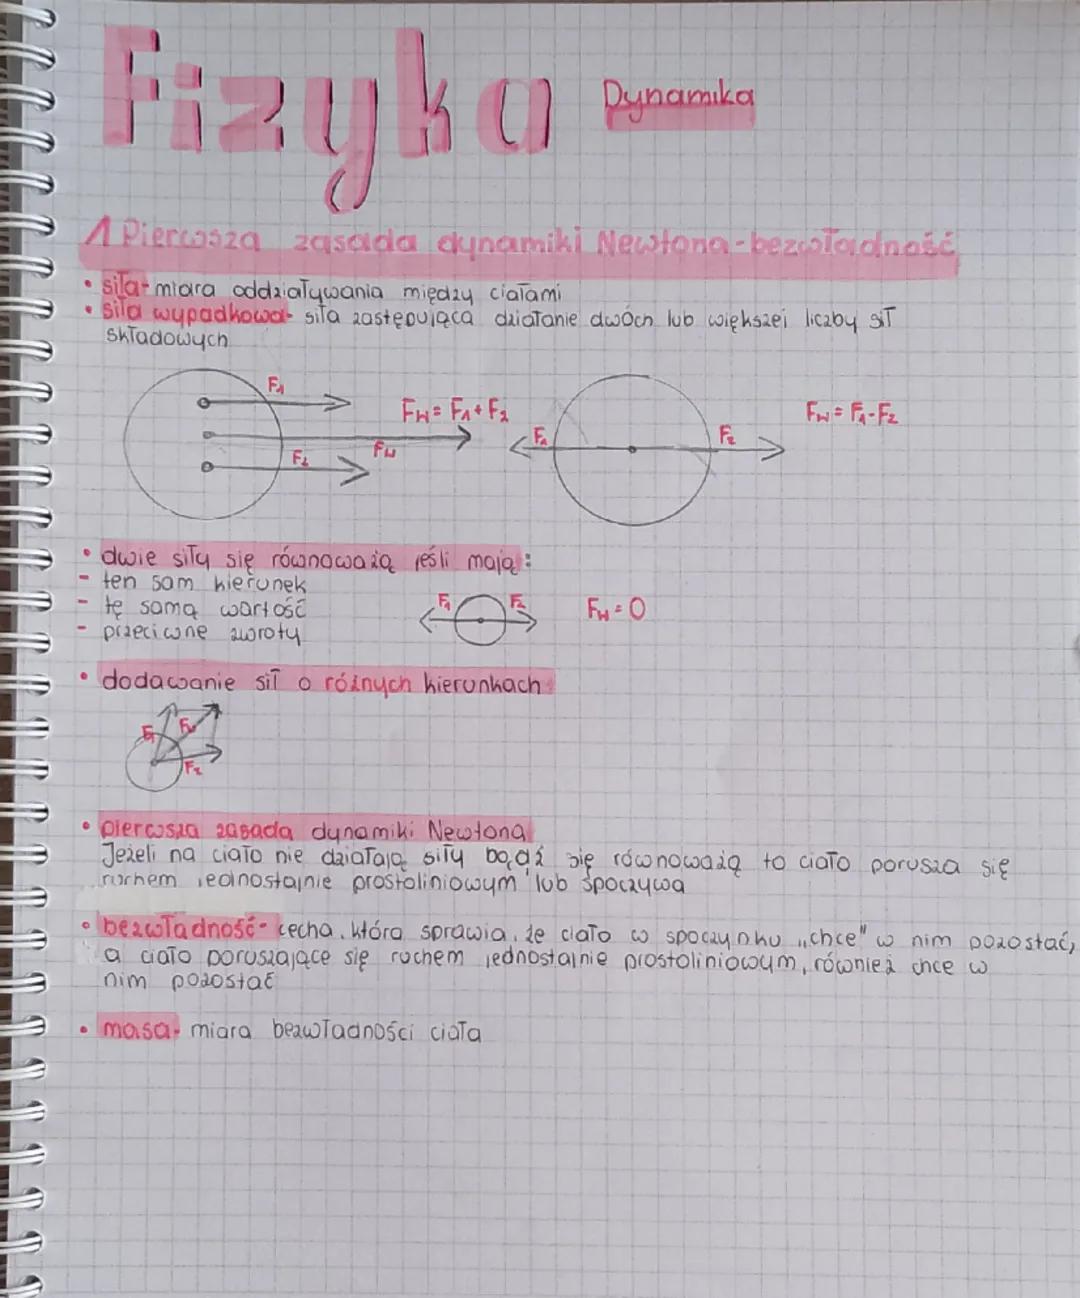 Fizyka
Dynamika
1 Pierwsza zasada dynamiki Newtona - bezwładność
• siła - miara oddziaływania między ciałami
• siła wypadkowa - siła zastępująca działanie dwóch lub większej liczby sił
składowych
F1
Fw = F1 + F2
Fw
F2
F1
F2
Fw = F1 - F2
• dwie siły się równoważą jeśli mają:
- ten sam kierunek
- tę samą wartość
- przeciwne zwroty
F1
F2
Fw = 0
• dodawanie sił o różnych kierunkach
F1
Fw
F2
• pierwsza zasada dynamiki Newtona
Jeżeli na ciało nie działają siły bądź się równoważą to ciało porusza się
ruchem jednostajnie prostoliniowym lub spoczywa
• bezwładność - cecha, która sprawia, że ciało w spoczynku „chce" w nim pozostać,
a ciało poruszające się ruchem jednostajnie prostoliniowym, również chce w
nim pozostać
• masa - miara bezwładności ciała